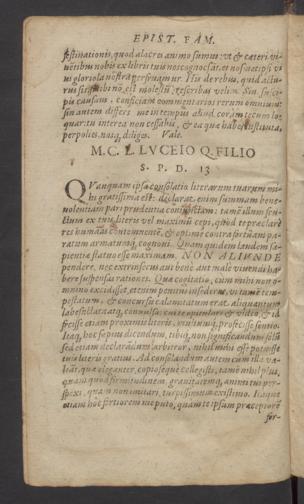 EPIST. FAM.
festinationis, quod alacres animo sumus: ut & cæteri vi-
ventibus nobis ex libris tuis nos cognoscāt, et nosmetipsi vi
vi gloriola nostra perfruamur. His de rebus, quid actu-
rus sis, si tibi nō est molestū, rescribas velim. Sin susci-
pis causam, conficiam commentarios rerum omnium:
sin autem differs me in tempus aliud, coram tecum lo-
quar. tu interea non cessabis, & ea quæ habes instituta,
perpolies, nosq; diliges. Vale.
M. C. L. LVCEIO Q. FILIO
S. P. D. 13
QVanquam ipsa consolatio literarum tuarum mi-
hi gratissima est: declarat enim summam bene-
volentiam pari prudentia coniunctam: tamē illum fru-
ctum ex tuis literis vel maximū cepi, quod te præclarè
res humanas contemnentē, & optimè contra fortunā pa-
ratum armatumq; cognovi. Quam quidem laudem sa-
pientiæ statuo esse maximam, NON ALIVNDE
pendere, nec extrinsecus aut benè aut malè vivendi ha-
bere suspensas rationes. Quæ cogitatio, cum mihi non o-
mnino excidisset, etenim penitus insederat, vi tamē tem-
pestatum, & concursu calamitatum erat aliquantum
labefactata atq; convulsa: cui te opitulari & video & id
fecisse etiam proximis literis, multumq; profecisse sentio.
Itaq; hoc sæpius dicendum, tibiq; non significandum solū
sed etiam declarandum arbitror, nihil mihi esse potuisse
tuis literis gratius. Ad consolandum autem cum illa va-
leāt, quæ eleganter, copioseque collegisti, tamē nihil plus,
quàm quòd firmitudinem gravitatemq; animi tui per-
spexi, quam non imitari, turpissimum existimo. Itaque
etiam hoc fortiorem me puto, quam te ipsum præceptorē
for-